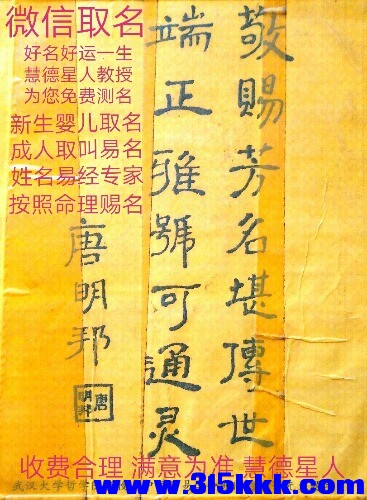 微信取名
好名好运一生
慧德星人教授
为您免费测名
新生婴儿取名
成人取叫易名
姓名易经专家
按照命理赐名
敬賜芳名堪傳世
端正雅號可通灵
唐明邦
唐明邦
武汉大学哲学
收费合理 满意为准 慧德星人
www.315kkk.com